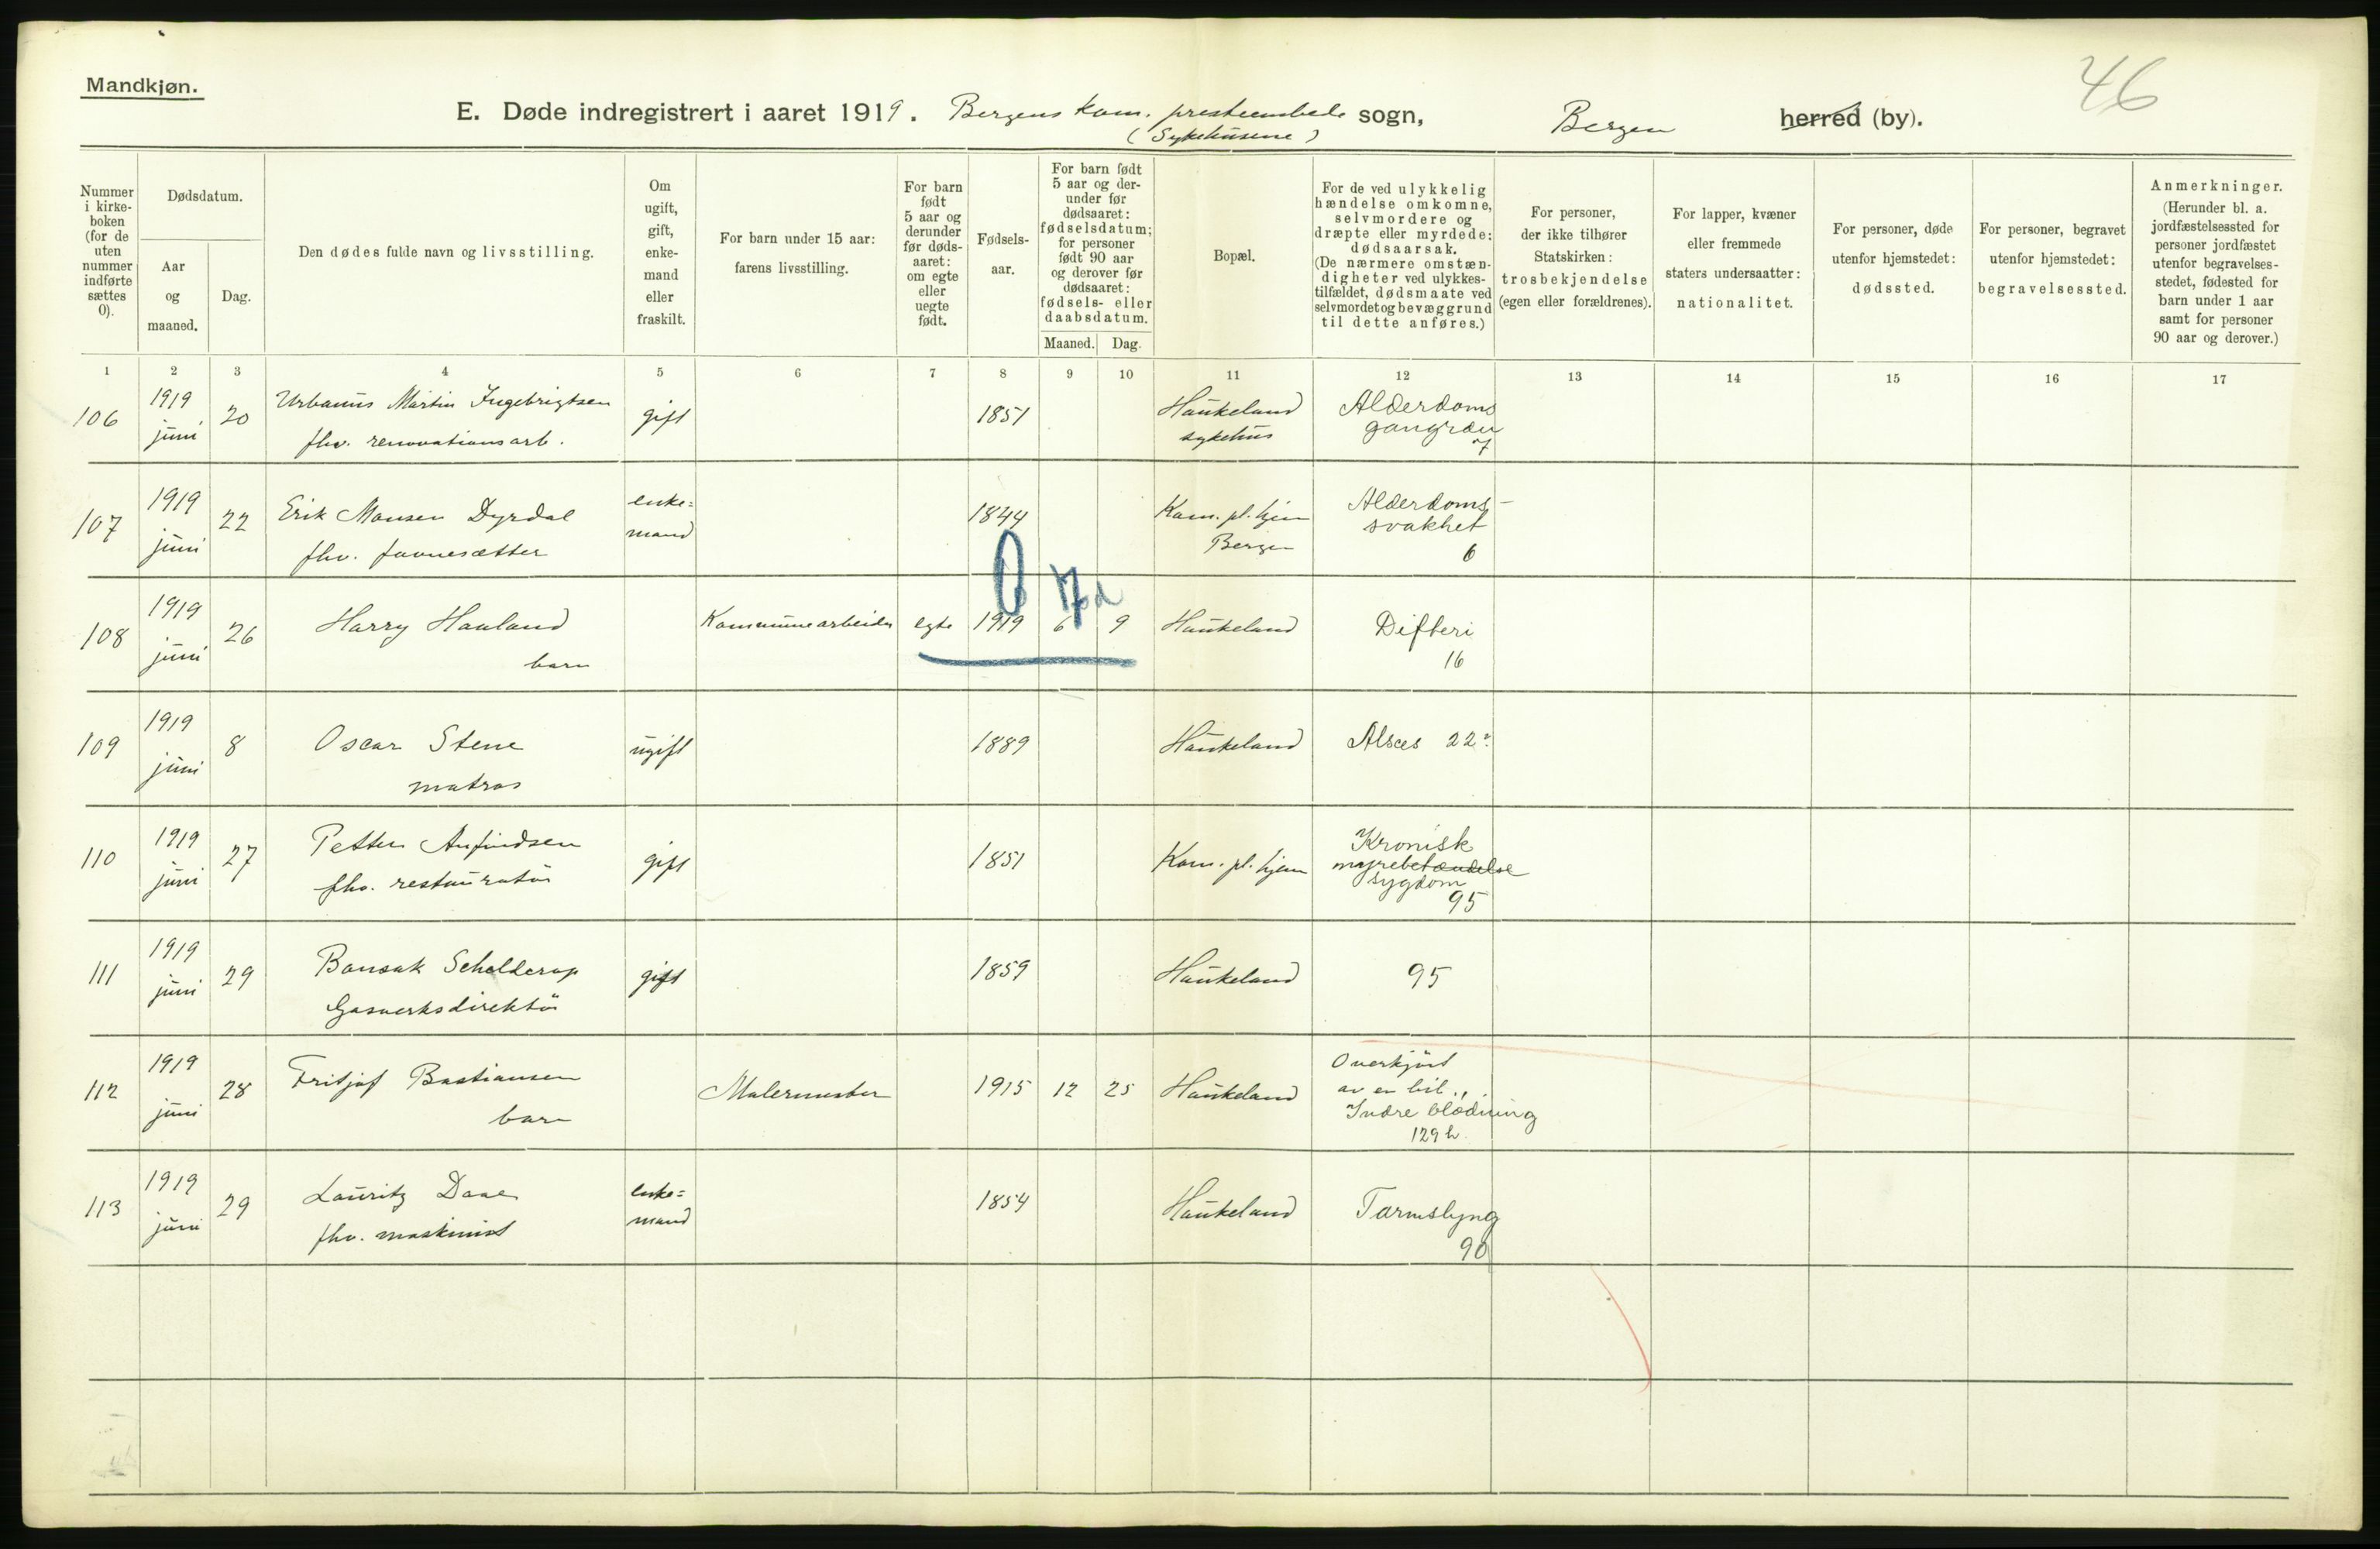 Mandkjøn.
46
E. Døde indregistrert i aaret 1919. Bergens kom. presteembede sogn, Bergen herred (by).
(Sykehusene)
Nummer i kirke-boken (for de uten nummer indførte sættes 0).
Dødsdatum.
Aar og maaned.
Dag.
Den dødes fulde navn og livsstilling.
Om ugift, gift, enke-mand eller fraskilt.
For barn under 15 aar: farens livsstilling.
For barn født 5 aar og derunder før døds-aaret: om egte eller uegte født.
Fødsels-aar.
For barn født 5 aar og der-under før dødsaaret: fødselsdatum; for personer født 90 aar og derover før dødsaaret: fødsels- eller daabsdatum.
Maaned.
Dag.
Bopæl.
For de ved ulykkelig hændelse omkomne, selvmordere og dræpte eller myrdede: dødsaarsak. (De nærmere omstæn-digheter ved ulykkes-tilfældet, dødsmaate ved selvmordet og bevæggrund til dette anføres.)
For personer, der ikke tilhører Statskirken: trosbekjendelse (egen eller forældrenes).
For lapper, kvæner eller fremmede staters undersaatter: nationalitet.
For personer, døde utenfor hjemstedet: dødssted.
For personer, begravet utenfor hjemstedet: begravelsessted.
Anmerkninger. (Herunder bl. a. jordfæstelsessted for personer jordfæstet utenfor begravelses-stedet, fødested for barn under 1 aar samt for personer 90 aar og derover.)
1 2 3 4 5 6 7 8 9 10 11 12 13 14 15 16 17
106 1919 juni 20 Urbanus Martin Ingebrigtsen gift 1851 Haukeland sykehus Alderdoms gangræn
fhv. renovationsarb. 7
107 1919 juni 22 Erik Monsen Dyrdal enke=mand 1844 Kom. pl. hjem Bergen Alderdoms-svakhet
fhv. favnesætter 6
0 Md
108 1919 juni 26 Harry Hauland Kommunearbeider egte 1919 6 9 Haukeland Difteri
barn 16
109 1919 juni 8 Oscar Stene ugift 1889 Haukeland Absces 22
matros
110 1919 juni 27 Petter Anfindsen gift 1851 Kom. pl. hjem Kronisk nyrebetændelse
fhv. restauratør sygdom 95
111 1919 juni 29 Bonsak Schelderup gift 1859 Haukeland 95
Gasverksdirektør
112 1919 juni 28 Fritjof Bastiansen Malermester 1915 12 25 Haukeland Overkjørt av en bil.
barn Indre blødning 129 h.
113 1919 juni 29 Lauritz Daae enke=mand 1854 Haukeland Tarmslyng
fhv. maskinist 90